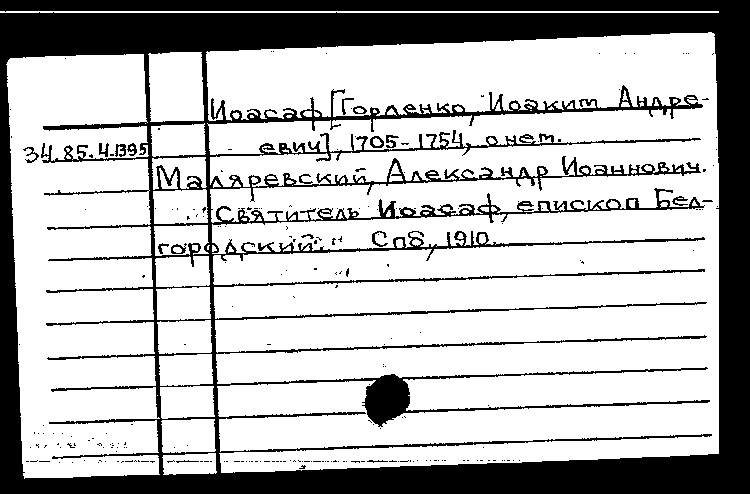 Иоасаф [Горленко, Иоаким Андре-
34.85.4.1395 евич], 1705-1754, о нем.
Маляревский, Александр Иоаннович.
"Святитель Иоасаф, епископ Бел-
городский." Спб., 1910.